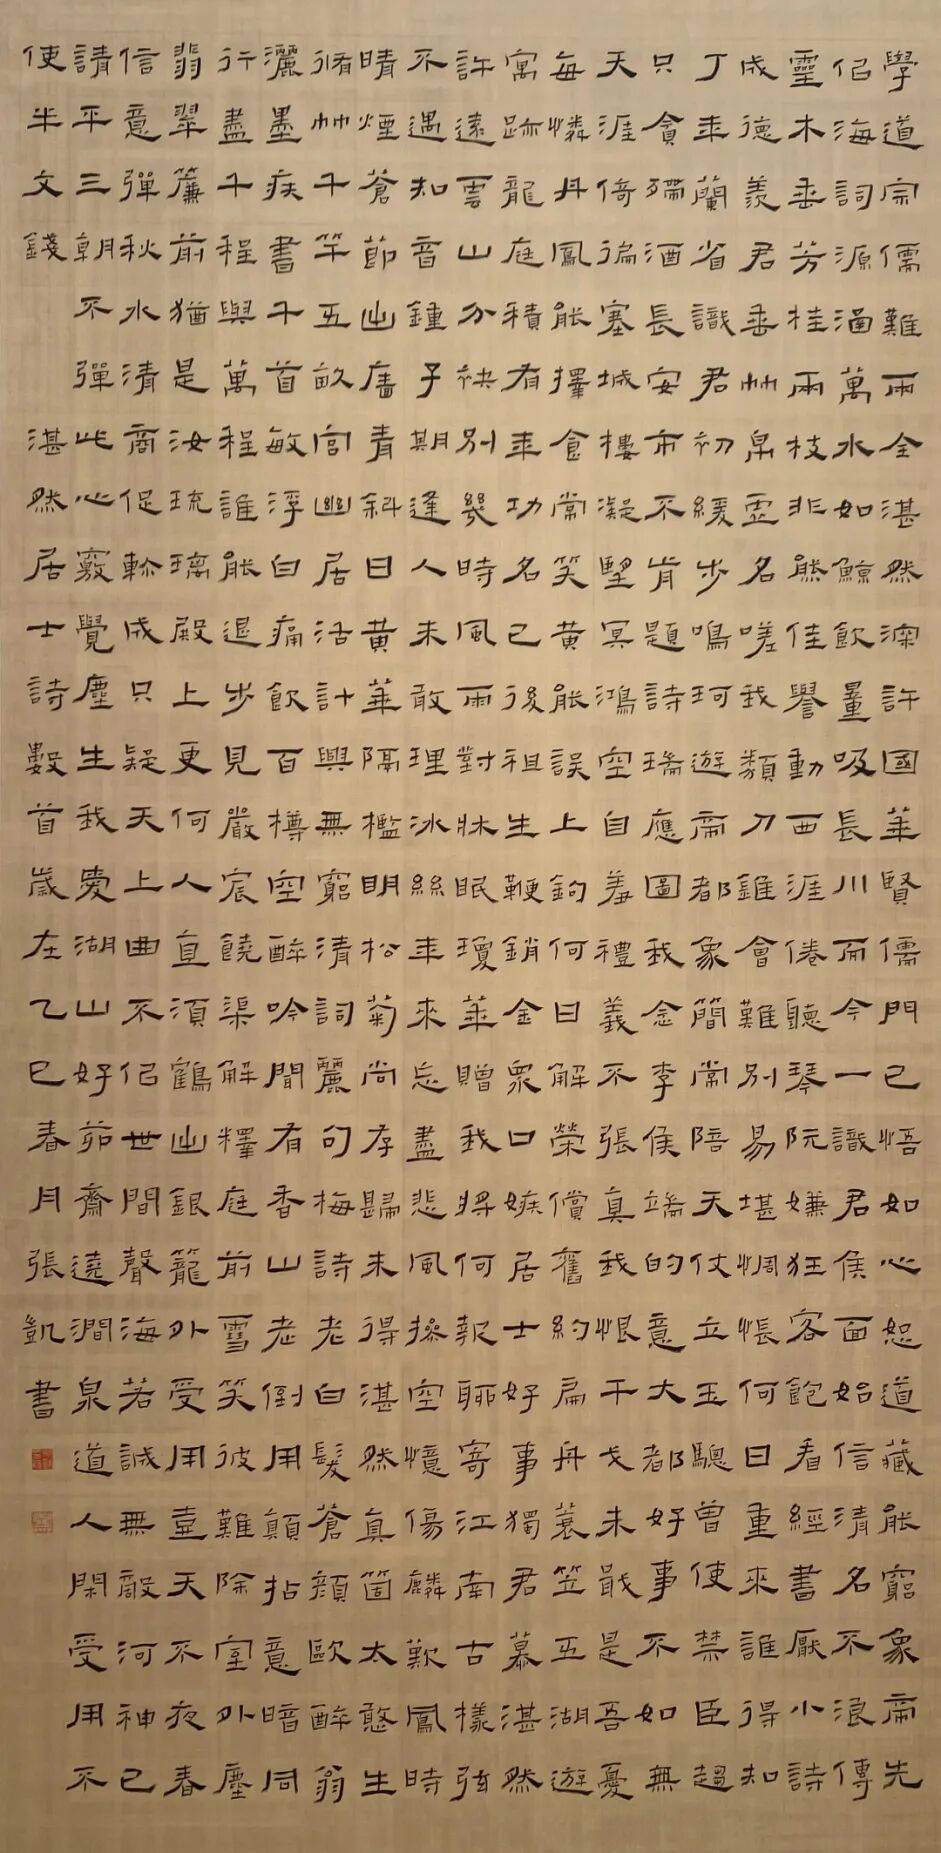 學道宗儒難兩全湛然深許國華賢儒門已悟如心恕道藏能窮象帝先
佀海詞源涵萬水如鯨飲量吸長川而今一識君侯面始信清名不浪傳
靈木垂芳桂兩枝非熊佳譽動西涯倦聽琴阮嫌狂客飽看經書厭小詩
成德羨君垂竹帛虛名嗟我類刀錐會難別易堪惆悵何日重來誰得知
丁年蘭省識君初緩步鳴珂遊帝都象簡常陪天仗立玉驄曾使禁臣趨
只貪殢酒長安市不肯題詩瑞應圖我念李侯端的意大都好事不如無
天涯倚徧塞城樓凝望冥鴻空自羞禮義不張真我恨干戈未戢是吾憂
每憐丹鳳能擇食常笑黃能誤上鉤何日解榮償舊約扁舟蓑笠五湖遊
寓跡龍庭積有年功名已後祖生鞭銷金衆口嫉居士好事獨君慕湛然
許遠雲山分袂別幾時風雨對牀眠瓊華贈我將何報聊寄江南古樣弦
不遇知音鍾子期逢人未敢理冰絲年來忘盡悲風操空憶傷麟歎鳳時
晴煙蒼節出廧青斜日黃華隔檻明松菊尚存歸未得湛然真箇太憨生
脩竹千竿五畝宮幽居活計興無窮清詞麗句梅詩老白髮蒼顏歐醉翁
灑墨疾書千首敏浮白痛飲百樽空醉吟聞有香山老倒用顛拈意暗同
行盡千程與萬程誰能退步見嚴宸饒渠解釋庭前雪笑彼難除室外塵
翡翠簾前猶是汝琉璃殿上更何人直須鶴出銀籠外受用壺天不夜春
信意彈秋水清商促軫成只疑天上曲不佀世間聲海若誠無敵河神已
請平三朝不彈此心竅覺塵生我愛湖山好茆齋遶澗泉道人閑受用不
使半文錢 湛然居士詩數首歲在乙巳春月張凱書